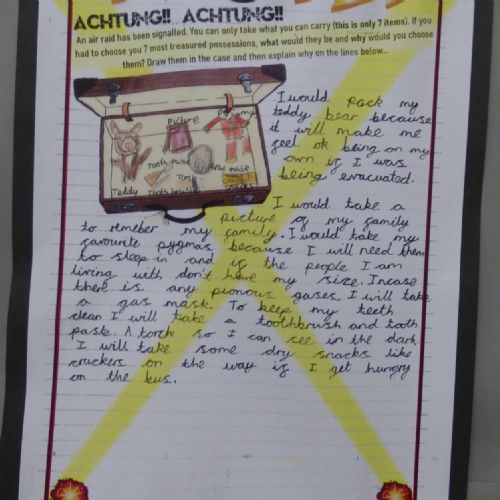 ACHTUNG!! ACHTUNG!!
An air raid has been signalled. You can only take what you can carry (this is only 7 items). If you
had to choose you 7 most treasured possessions, what would they be and why would you choose
them? Draw them in the case and then explain why on the lines below...
picture
Teddy
Tooth paste
Torch
gas mask
Tooth brush
snacks
I would pack my
teddy bear because
it will make me
feel ok being on my
own if I was
being evacuated.
I would take a
picture of my family
to remeber my family. I would take my
favourite pygmas because I will need them
to sleep in and if the people I am
living with don't have my size. Incase
there is any pionous gases, I will take
a gas mask. To keep my teeth
clean I will take a toothbrush and tooth
paste. A torch so I can see in the dark.
I will take some dry snacks like
crackers on the way if I get hungry
on the bus.